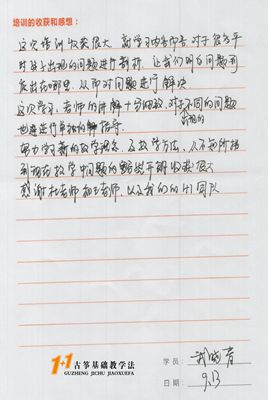 培训的收获和感想：
这次培训收获很大，新学习内容而言，对于很多平
时教学出现的问题进行剖析，让我们明白问题到
底出在哪里，从而对问题进行解决
这次学习，老师的讲解十分细致，对于不同的问题
出现的
也进行单独的指导。
努力学习新的教学理念，及教学方法，从不知所措
到现在教学中问题的迎刃而解收获很大
感谢杜老师和王老师，以及我们的1+1团队
1+1 古筝基础教学法
GUZHENG JICHU JIAOXUEFA
学员：
日期：9.13